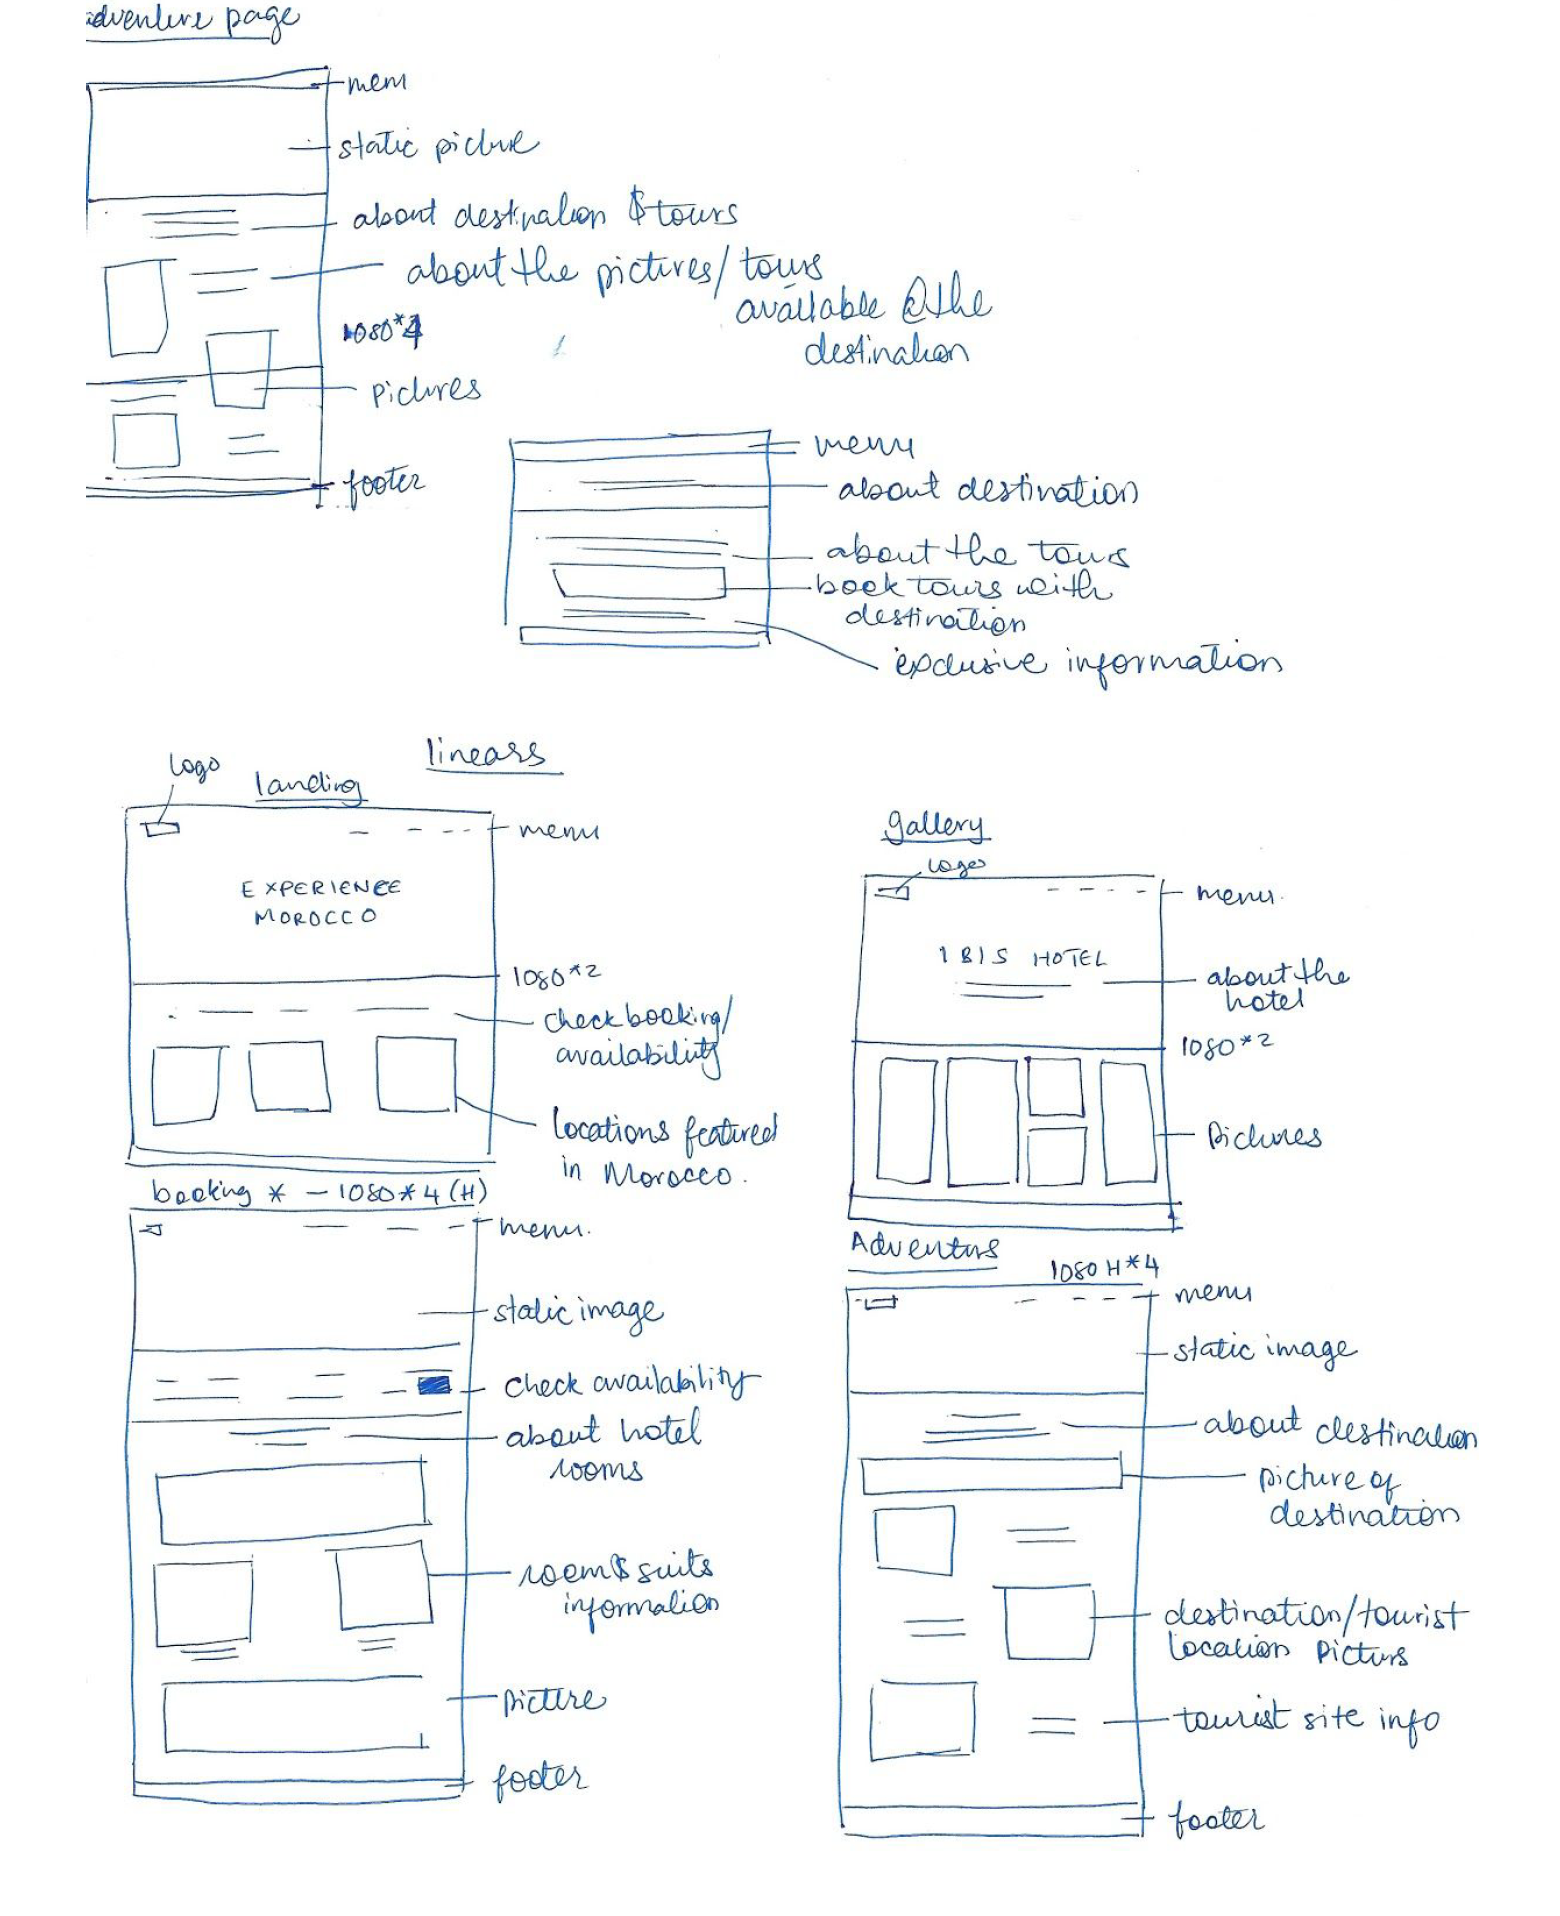 adventure page
menu
static picture
about destination & tours
about the pictures/tours
available @ the
destination
1080*4
pictures
footer
menu
about destination
about the tours
book tours with
destination
exclusive information
linears
logo
landing
menu
EXPERIENCE
MOROCCO
1080*2
check booking/
availability
locations featured
in Morocco.
gallery
logo
menu.
IBIS HOTEL
about the
hotel
1080*2
Pictures
booking * - 1080*4 (H)
menu.
static image
check availability
about hotel
rooms
room & suits
information
picture
footer
Adventurs
1080 H*4
menu
static image
about destination
picture of
destination
destination/tourist
location picturs
tourist site info
footer